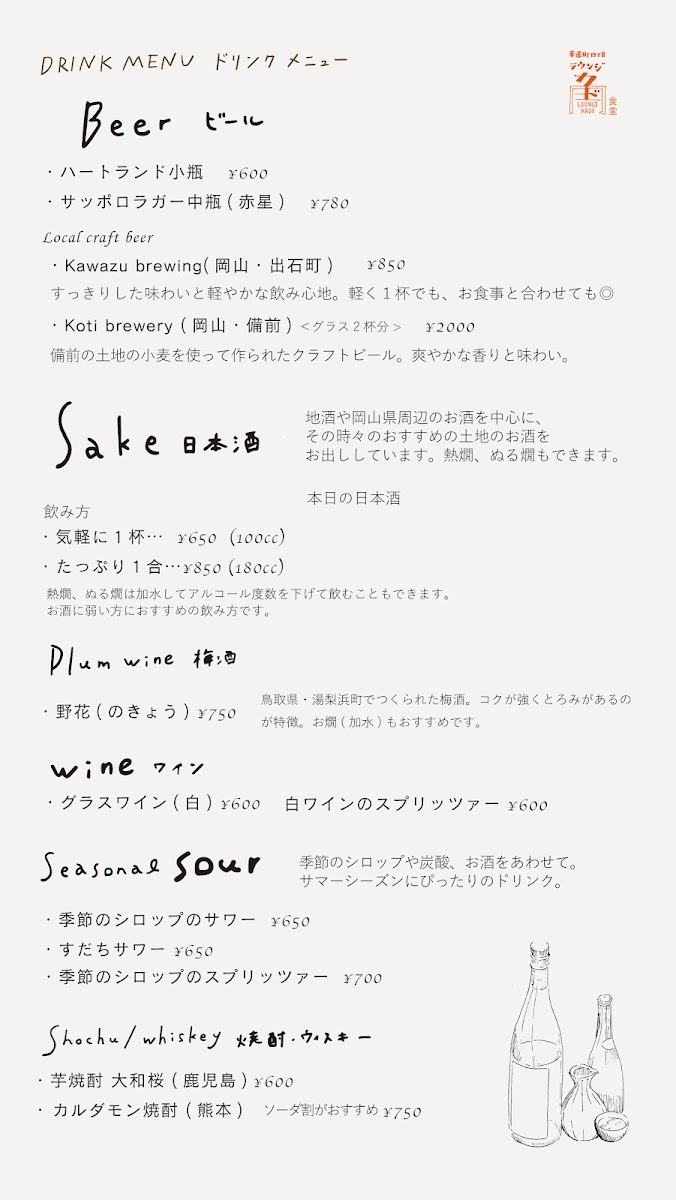 DRINK MENU ドリンク メニュー
奉還町四丁目
ラウンジ
カド
LOUNGE
KADO
食堂
Beer ビール
・ハートランド小瓶 ¥600
・サッポロラガー中瓶 ( 赤星 ) ¥780
Local craft beer
・Kawazu brewing( 岡山・出石町 ) ¥850
すっきりした味わいと軽やかな飲み心地。軽く1杯でも、お食事と合わせても◎
・Koti brewery ( 岡山・備前 ) <グラス2杯分> ¥2000
備前の土地の小麦を使って作られたクラフトビール。爽やかな香りと味わい。
Sake 日本酒
地酒や岡山県周辺のお酒を中心に、
その時々のおすすめの土地のお酒を
お出ししています。熱燗、ぬる燗もできます。
本日の日本酒
飲み方
・気軽に1杯… ¥650 (100cc)
・たっぷり1合…¥850 (180cc)
熱燗、ぬる燗は加水してアルコール度数を下げて飲むこともできます。
お酒に弱い方におすすめの飲み方です。
Plum wine 梅酒
・野花 ( のきょう ) ¥750
鳥取県・湯梨浜町でつくられた梅酒。コクが強くとろみがあるの
が特徴。お燗 ( 加水 ) もおすすめです。
wine ワイン
・グラスワイン ( 白 ) ¥600 白ワインのスプリッツァー ¥600
Seasonal sour
季節のシロップや炭酸、お酒をあわせて。
サマーシーズンにぴったりのドリンク。
・季節のシロップのサワー ¥650
・すだちサワー ¥650
・季節のシロップのスプリッツァー ¥700
Shochu/whiskey 焼酎・ウィスキー
・芋焼酎 大和桜 ( 鹿児島 ) ¥600
・カルダモン焼酎 ( 熊本 ) ソーダ割がおすすめ ¥750